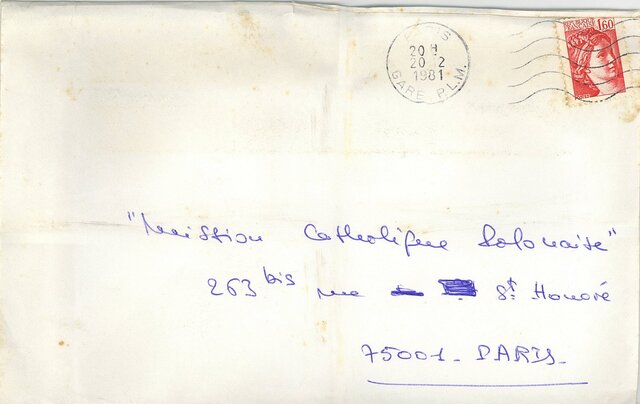 PARIS
20H
20 12
1981
GARE P.L.M.
1,60
"Mission Catholique Polonaise"
263 bis rue St Honoré
75001 - PARIS -